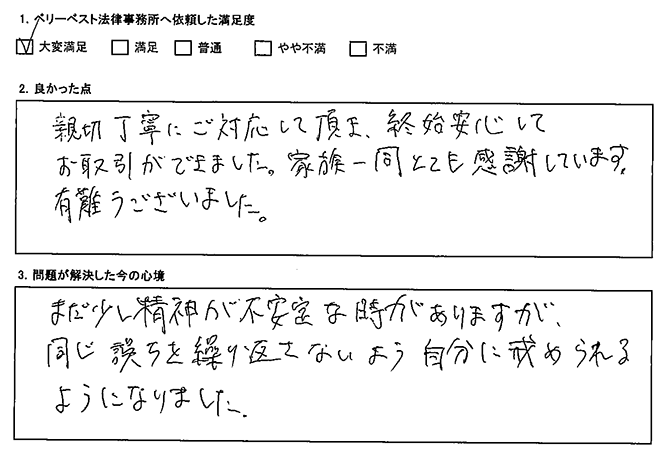 1. ベリーベスト法律事務所へ依頼した満足度
大変満足 満足 普通 やや不満 不満
2. 良かった点
親切丁寧にご対応して頂き、終始安心して
お取引ができました。家族一同とても感謝しています。
有難うございました。
3. 問題が解決した今の心境
まだ少し精神が不安定な時がありますが、
同じ誤ちを繰り返さないよう自分に戒められる
ようになりました。